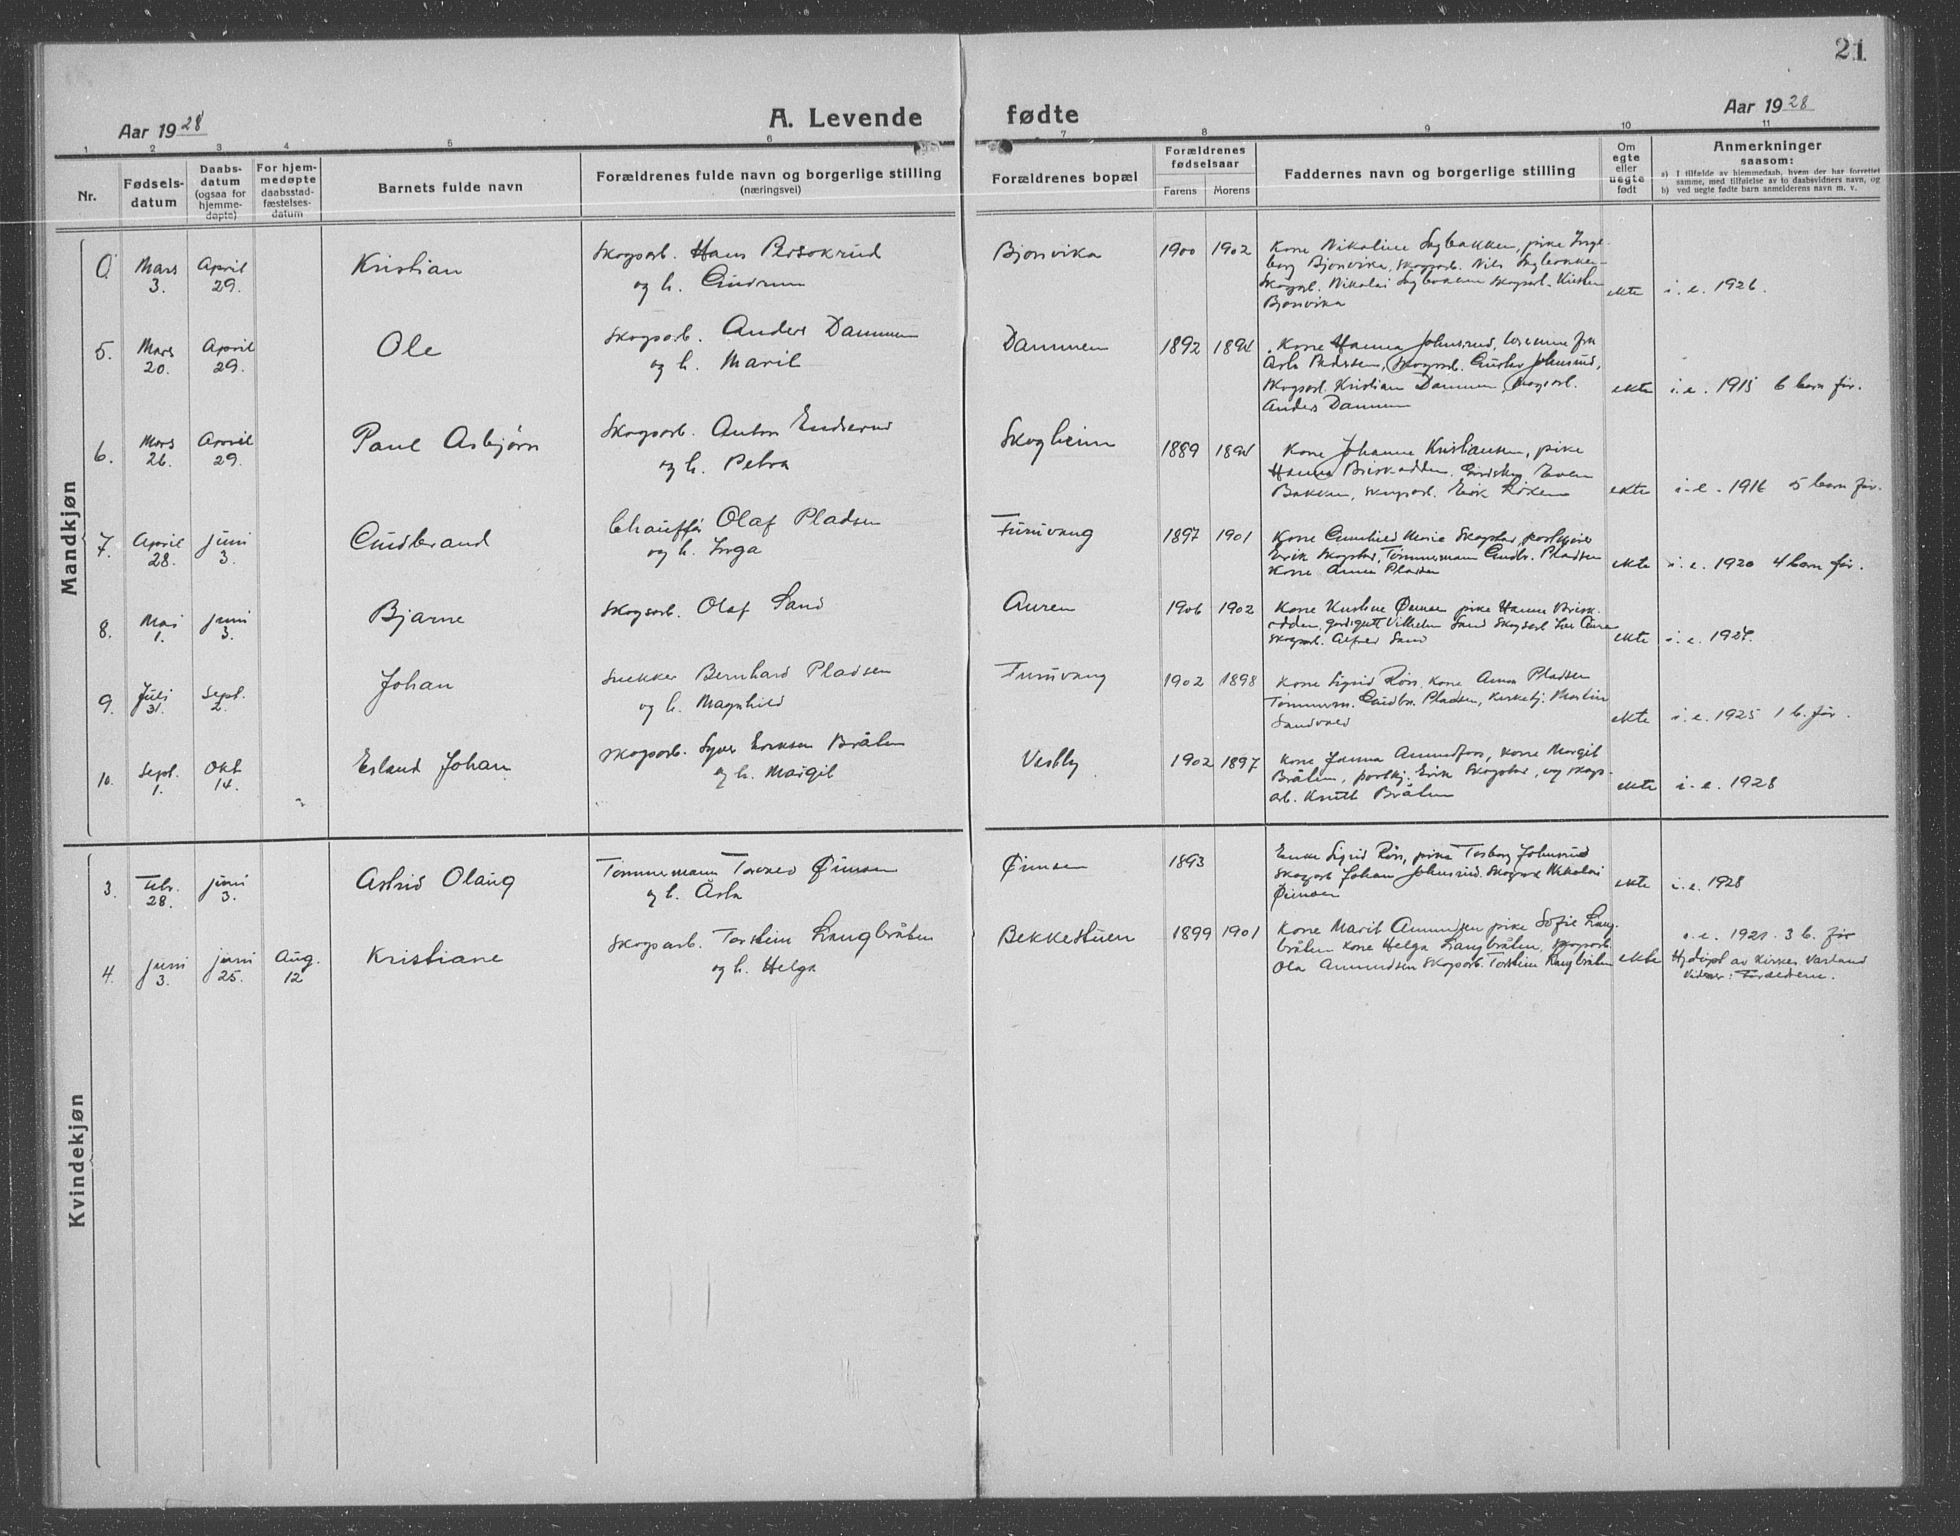 21
Aar 1928
A. Levende fødte
Aar 1928
1 2 3 4 5 6 7 8 9 10 11
Nr.
Fødsels-
datum
Daabs-
datum
(ogsaa for
hjemme-
døpte)
For hjem-
medøpte
daabsstad-
fæstelses-
datum
Barnets fulde navn
Forældrenes fulde navn og borgerlige stilling
(næringsvei)
Forældrenes bopæl
Forældrenes
fødselsaar
Farens Morens
Faddernes navn og borgerlige stilling
Om
egte
eller
uegte
født
Anmerkninger
saasom:
a) I tilfælde av hjemmedaab, hvem der har forrettet
samme, med tilføielse av to daabsvidners navn, og
b) ved uegte fødte barn anmelderens navn m. v.
Mandkjøn
Mars 3. April 29. Kristian
Skogsarb. Hans
og h. Gudrun
Bjørvika 1900 1902
Kone Nikoline Sagbakken, pike Inge-
borg Bjørvika, skogsarb. Nils Sagbakken
Skogsarb. Nikolai Sagbakken skogsarb. Kristen
Bjørvika
ekte i. e. 1926.
5. Mars 20. April 29. Ole
Skogsarb. Anders Dammen
og h. Marit
Dammen 1892
Kone Hanna Johnsrud,
skogsarb. Gustav Johnsrud,
skogsarb. Kristian Dammen, skogsarb.
Anders Dammen
ekte i. e. 1915 6 barn før.
6. Mars 26. April 29. Paul Asbjørn
Skogsarb. Anton Endserud
og h. Petra
Skogheim 1889
Kone Johanne Kristiansen, pike
Hanna Briskodden, Even
Bakken, skogsarb. Erik
ekte i. e. 1916 5 barn før.
7. April 28. juni 3. Gudbrand
Chauffør Olaf Pladsen
og h. Inga
Furuvang 1897 1901
Kone Gunhild Marie Skogstad,
Erik Skogstad, Tømmermann Gudbr. Pladsen
Kone Anna Pladsen
ekte i. e. 1920 4 barn før.
8. Mai 1. juni 3. Bjarne
Skogsarb. Olaf Sand
Auren 1906 1902
Kone Kristine Øimoen pike Hanna Brisk-
odden, gårdsgutt Vilhelm Sand skogsarb.
skogsarb. Alfred Sand
ekte i. e.
9. Juli 31. Sept. 2. Johan
Snekker Bernhard Pladsen
og h. Magnhild
Furuvang 1902 1898
Kone Sigrid Røis, Kone Anna Pladsen
Tømmerm. Gudbr. Pladsen, Kirketj. Martin
Sandvold
ekte i. e. 1925 1 b. før.
10. Sept. 1. Okt 14. Erland Johan
Skogsarb. Syver Eriksen Bråten
og h. Margit
Vestby 1902 1897
Kone Janna Amundfoss, Kone Margit
Bråten, postkj. Erik Skogstad, og skogs-
arb. Knut Bråten
ekte i. e. 1928
Kvindekjøn
3. Febr. 28. juni 3. Astrid Olaug
Tømmermann Torvald Øimoen
og h. Asta
Øimoen 1893
Enke Sigrid Røis, pike Torborg Johnsrud
skogsarb Johan Johnsrud. Skogsarb Nikolai
Øimoen
ekte i. e. 1928
4. juni 3. juni 25. Aug. 12 Kristiane
Skogsarb. Torstein Langbråten
og h. Helga
Bekkestuen 1899 1901
Kone Marit Amundsen pike Sofie Lang-
bråten Kone Helga Langbråten, skogsarb.
Ola Amundsen skogsarb. Torstein Langbråten
ekte i. e. 1921. 3 b. før
Hj.døpt av Kirkes. Varland
Vidner: Forældrene.